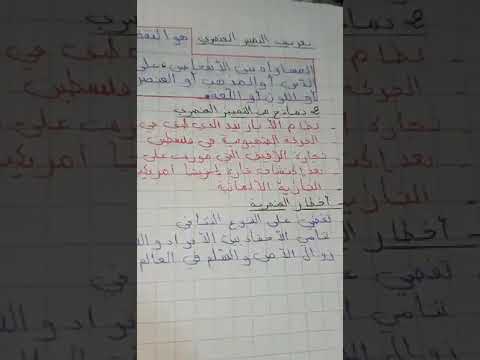 تعريف التمييز العنصري هو التفض
المساواة بين الأشخاص على
الدين أو المذهب أو العنصر
أو اللون أو اللغة
2 نماذج من التمييز العنصري
- نظام الأبارتايد الذي طبق في
الحركة الصهيونية في فلسطين
- تجارة الرقيق التي مورست على
بعد إكتشاف قارة أمريكا
- النازية الألمانية
- أخطار العنصرية
تقضي على التنوع الثقافي
تنامي الأحقاد بين الأفراد وال
زوال الأمن والسلم في العالم